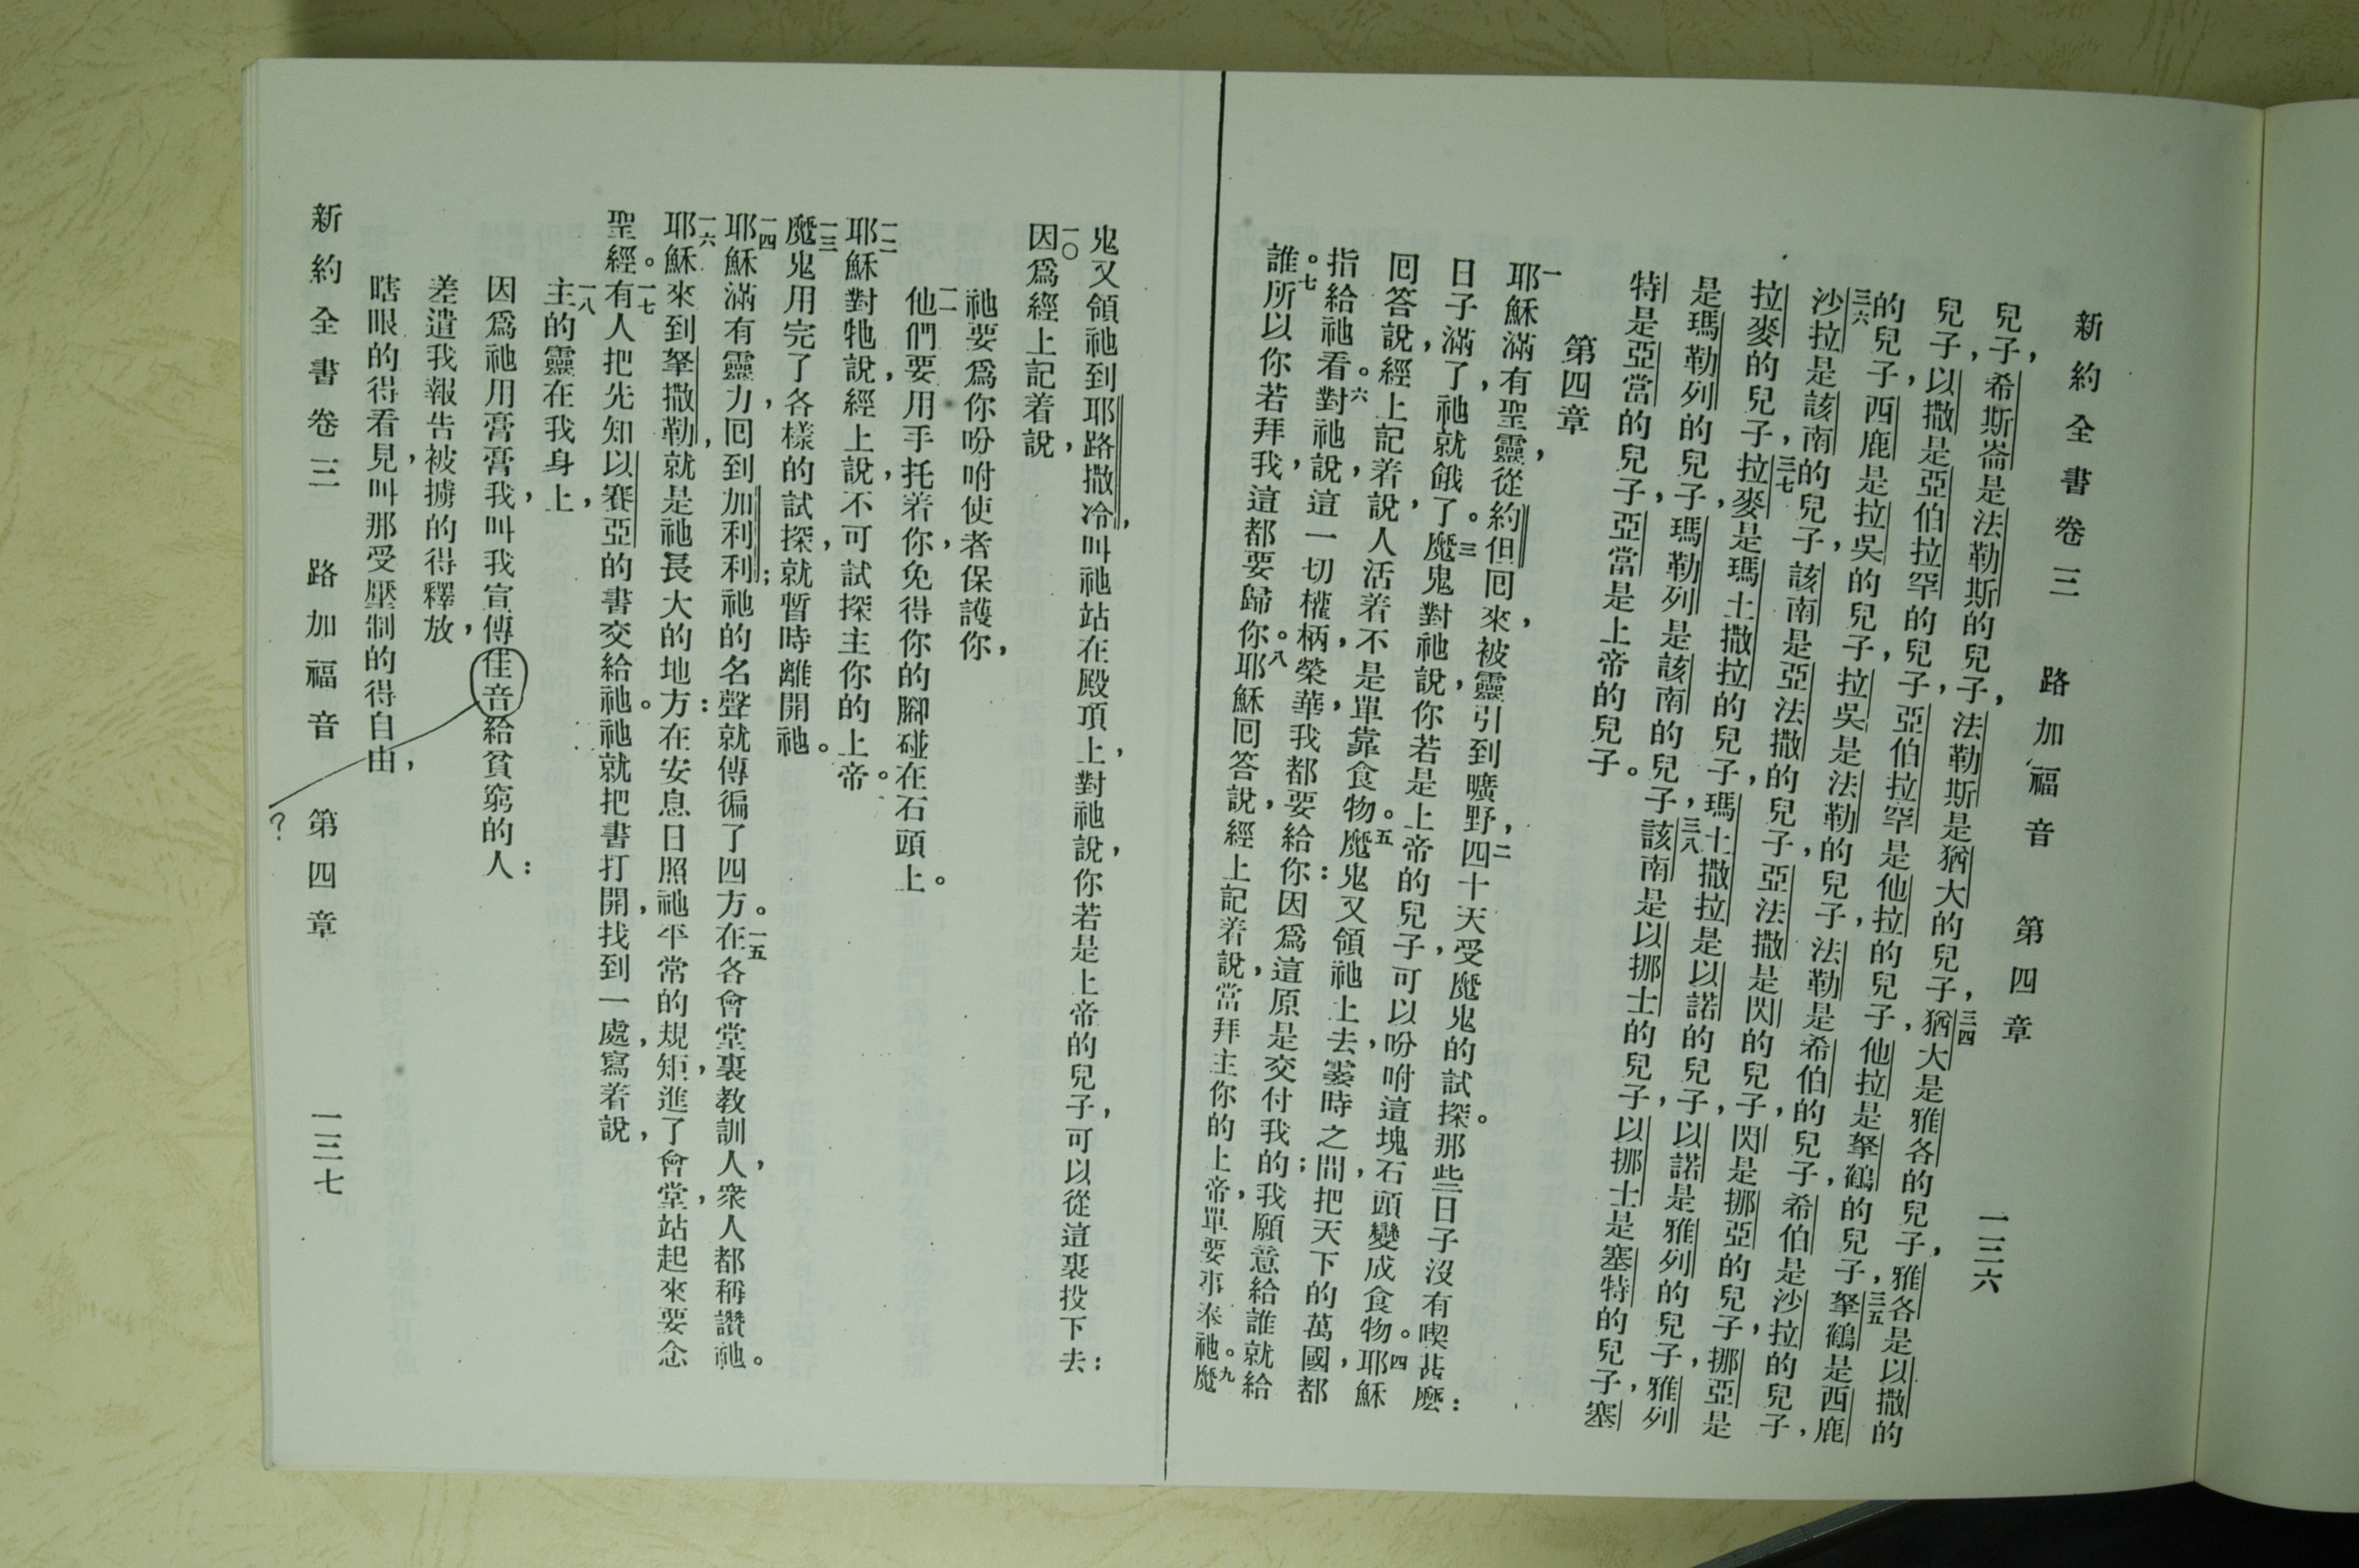 新約全書卷三　路加福音　第四章　一三六
兒子，希斯崙是法勒斯的兒子，法勒斯是猶大的兒子，三四猶大是雅各的兒子，雅各是以撒的
兒子，以撒是亞伯拉罕的兒子，亞伯拉罕是他拉的兒子，他拉是拏鶴的兒子，三五拏鶴是西鹿
的兒子，西鹿是拉吳的兒子，拉吳是法勒的兒子，法勒是希伯的兒子，希伯是沙拉的兒子，
三六沙拉是該南的兒子，該南是亞法撒的兒子，亞法撒是閃的兒子，閃是挪亞的兒子，挪亞是
拉麥的兒子，三七拉麥是瑪土撒拉的兒子，瑪土撒拉是以諾的兒子，以諾是雅列的兒子，雅列
是瑪勒列的兒子，瑪勒列是該南的兒子，三八該南是以挪士的兒子，以挪士是塞特的兒子，塞
特是亞當的兒子，亞當是上帝的兒子。
第四章
一耶穌滿有聖靈，從約但囘來，被靈引到曠野，二四十天受魔鬼的試探。那些日子沒有喫甚麼：
日子滿了，祂就餓了。三魔鬼對祂說，你若是上帝的兒子，可以吩咐這塊石頭變成食物。四耶穌
囘答說，經上記着說，人活着不是單靠食物。五魔鬼又領祂上去，霎時之間，把天下的萬國，都
指給祂看。六對祂說，這一切權柄，榮華，我都要給你：因爲這原是交付我的；我願意給誰就給
誰。七所以你若拜我，這都要歸你。八耶穌囘答說，經上記着說，當拜主你的上帝，單要事奉祂。九魔
鬼又領祂到耶路撒冷，叫祂站在殿頂上，對祂說，你若是上帝的兒子，可以從這裏投下去：
一〇因爲經上記着說，
祂要爲你吩咐使者保護你，
一一他們要用手托着你，免得你的腳碰在石頭上。
一二耶穌對牠說，經上說，不可試探主你的上帝。
一三魔鬼用完了各樣的試探，就暫時離開祂。
一四耶穌滿有靈力，囘到加利利；祂的名聲就傳徧了四方。一五在各會堂裏教訓人，衆人都稱讚祂。
一六耶穌來到拏撒勒，就是祂長大的地方：在安息日照祂平常的規矩，進了會堂，站起來要念
聖經。一七有人把先知以賽亞的書交給祂。祂就把書打開，找到一處，寫着說，
一八主的靈在我身上，
因爲祂用膏膏我，叫我宣傳佳音給貧窮的人：
差遣我報告被擄的得釋放，
瞎眼的得看見，叫那受壓制的得自由，
新約全書卷三　路加福音　第四章　一三七
?